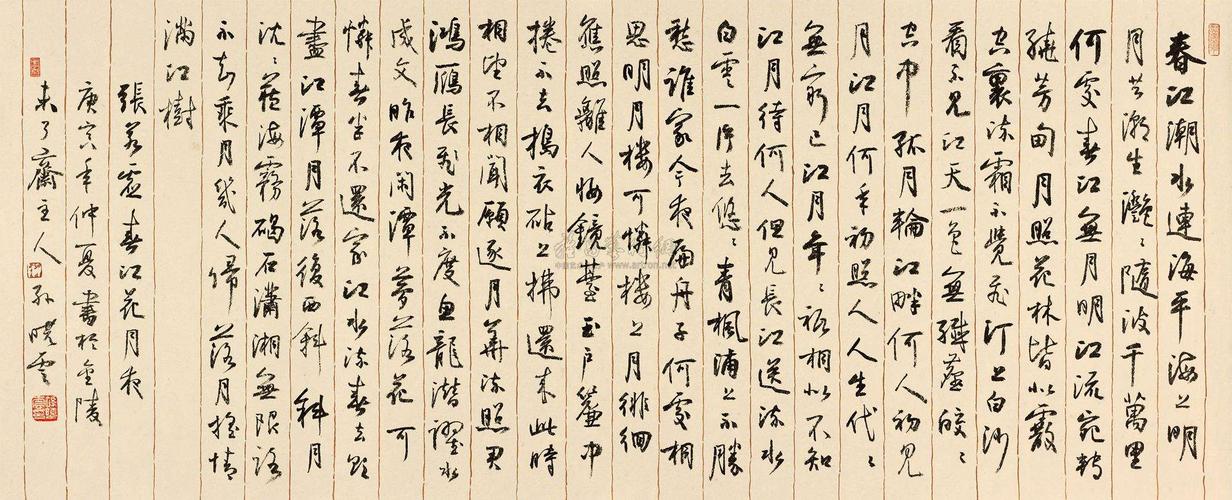 春江潮水連海平海上明
月共潮生灩〻隨波千萬里
何處春江無月明江流宛轉
繞芳甸月照花林皆似霰
空裏流霜不覺飛汀上白沙
看不見江天一色無纖塵皎〻
空中孤月輪江畔何人初見
月江月何年初照人人生代〻
無窮已江月年〻祗相似不知
江月待何人但見長江送流水
白雲一片去悠〻青楓浦上不勝
愁誰家今夜扁舟子何處相
思明月樓可憐樓上月徘徊
應照離人妝鏡臺玉戶簾中
捲不去搗衣砧上拂還來此時
相望不相聞願逐月華流照君
鴻雁長飛光不度魚龍潛躍水
成文昨夜閑潭夢落花可
憐春半不還家江水流春去欲
盡江潭月落復西斜斜月
沈〻藏海霧碣石瀟湘無限路
不知乘月幾人歸落月搖情
滿江樹
張若虛春江花月夜
庚寅年仲夏書於金陵
未了齋主人孫曉雲